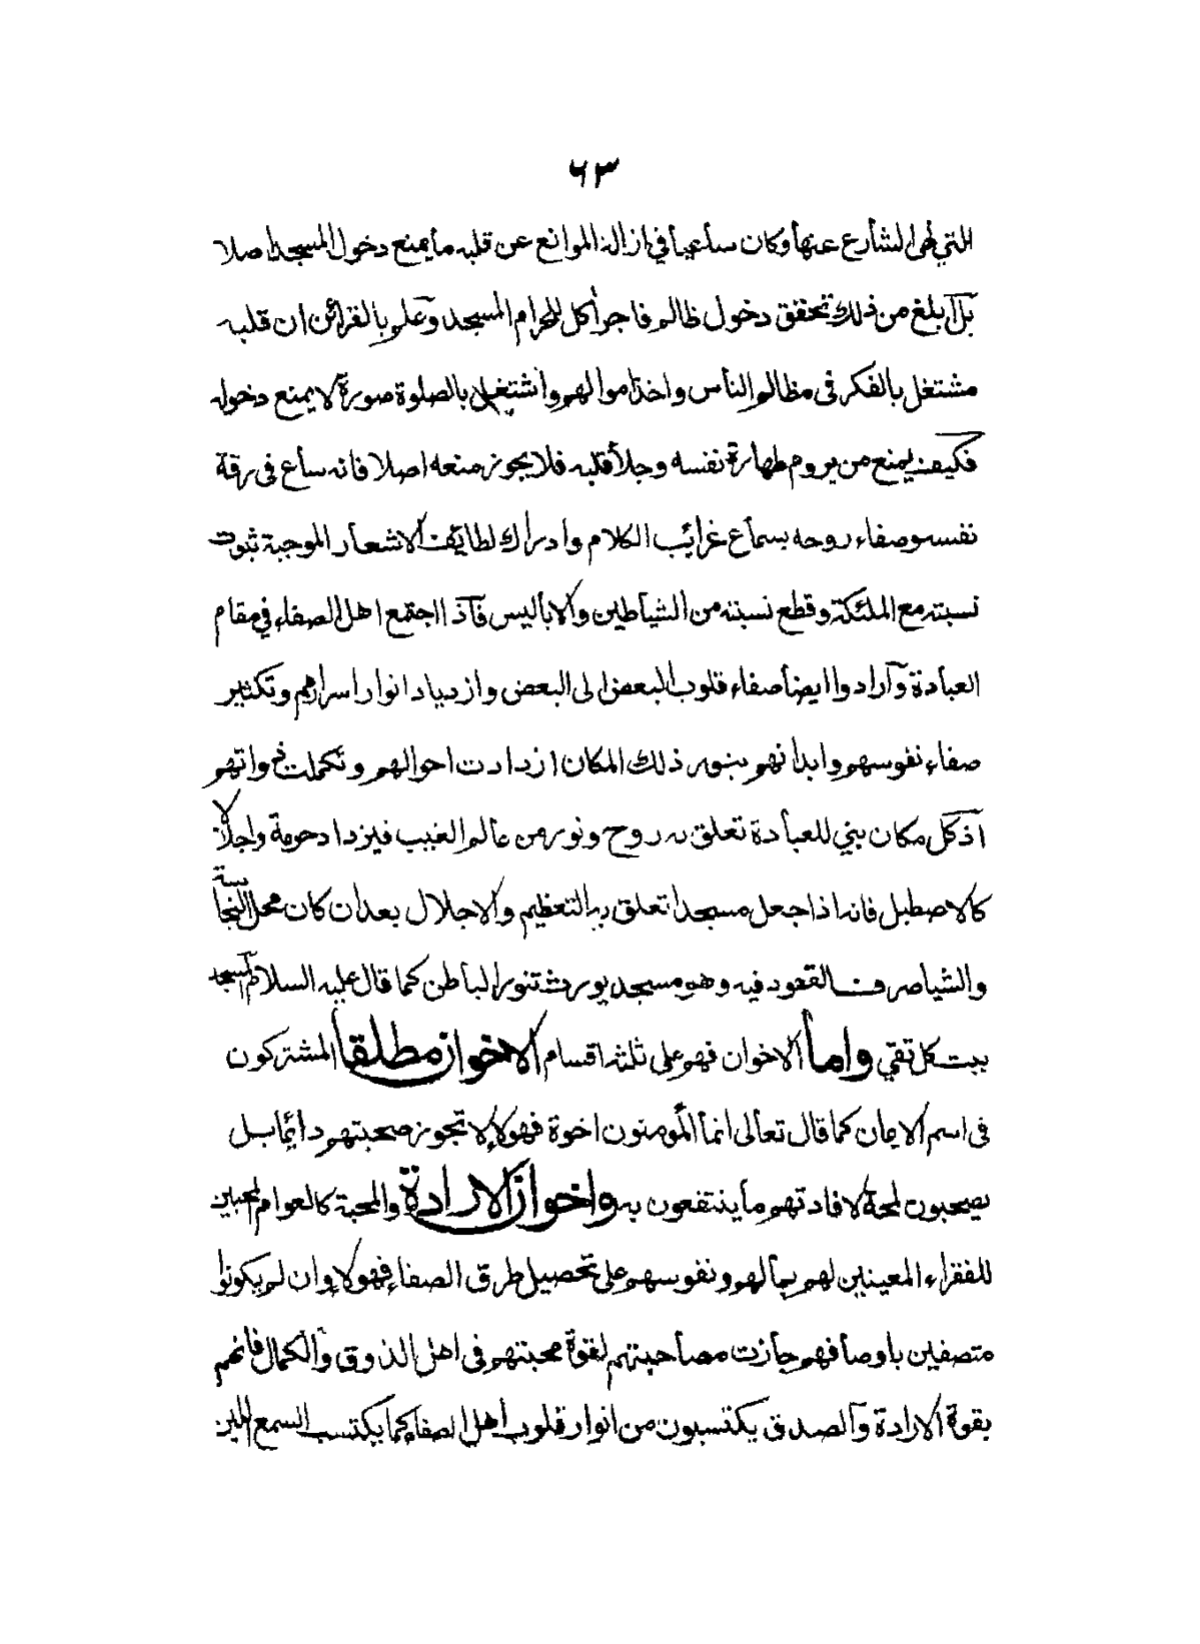 ۶۳
التي نهى الشارع عنها وكان ساعيا في ازالة الموانع عن قلبه ما يمنع دخول المسجد اصلا
بل ابلغ من ذلك تحقق دخول ظالم فاجر آكل للحرام المسجد وعلم بالقرائن ان قلبه
مشتغل بالفكر فى مظالم الناس واخذ اموالهم واشتغل بالصلوة صورة لا يمنع دخوله
فكيف يمنع من يروم طهارة نفسه وجلأ قلبه فلا يجوز منعه اصلا فانه ساع فى رقة
نفسه وصفاء روحه بسماع غرائب الكلام وادراك لطائف الاشعار الموجبة ثبوت
نسبته مع الملئكة وقطع نسبته من الشياطين والاباليس فاذا اجتمع اهل الصفاء في مقام
العبادة وارادوا ايضا صفاء قلوب البعض الى البعض وازدياد انوار اسرارهم وتكثير
صفاء نفوسهم وابدانهم بنور ذلك المكان ازدادت احوالهم وتكملت ذواتهم
اذ كل مكان بني للعبادة تعلق به روح ونور من عالم الغيب فيزداد حرمة واجلالا
كالاصطبل فانه اذا جعل مسجدا تعلق به التعظيم والاجلال بعد ان كان محل النجاسة
والشياصرف القعود فيه وهو مسجد يورث تنور الباطن كما قال عليه السلام المسجد
بيت كل تقي واما الاخوان فهم على ثلثة اقسام الاخوان مطلقا المشتركون
فى اسم الايمان كما قال تعالى انما المومنون اخوة فهولاء لا تجوز صحبتهم دائما بل
يصحبون لمحة لافادتهم ما ينتفعون به واخوان الارادة والمحبة كالعوام المحبين
للفقراء المعينين لهم بمالهم ونفوسهم على تحصيل طرق الصفاء فهولاء وان لم يكونوا
متصفين باوصافهم جازت مصاحبتهم لقوة محبتهم فى اهل الذوق والكمال فانهم
بقوة الارادة والصدق يكتسبون من انوار قلوب اهل الصفاء كما يكتسب السمع اللين